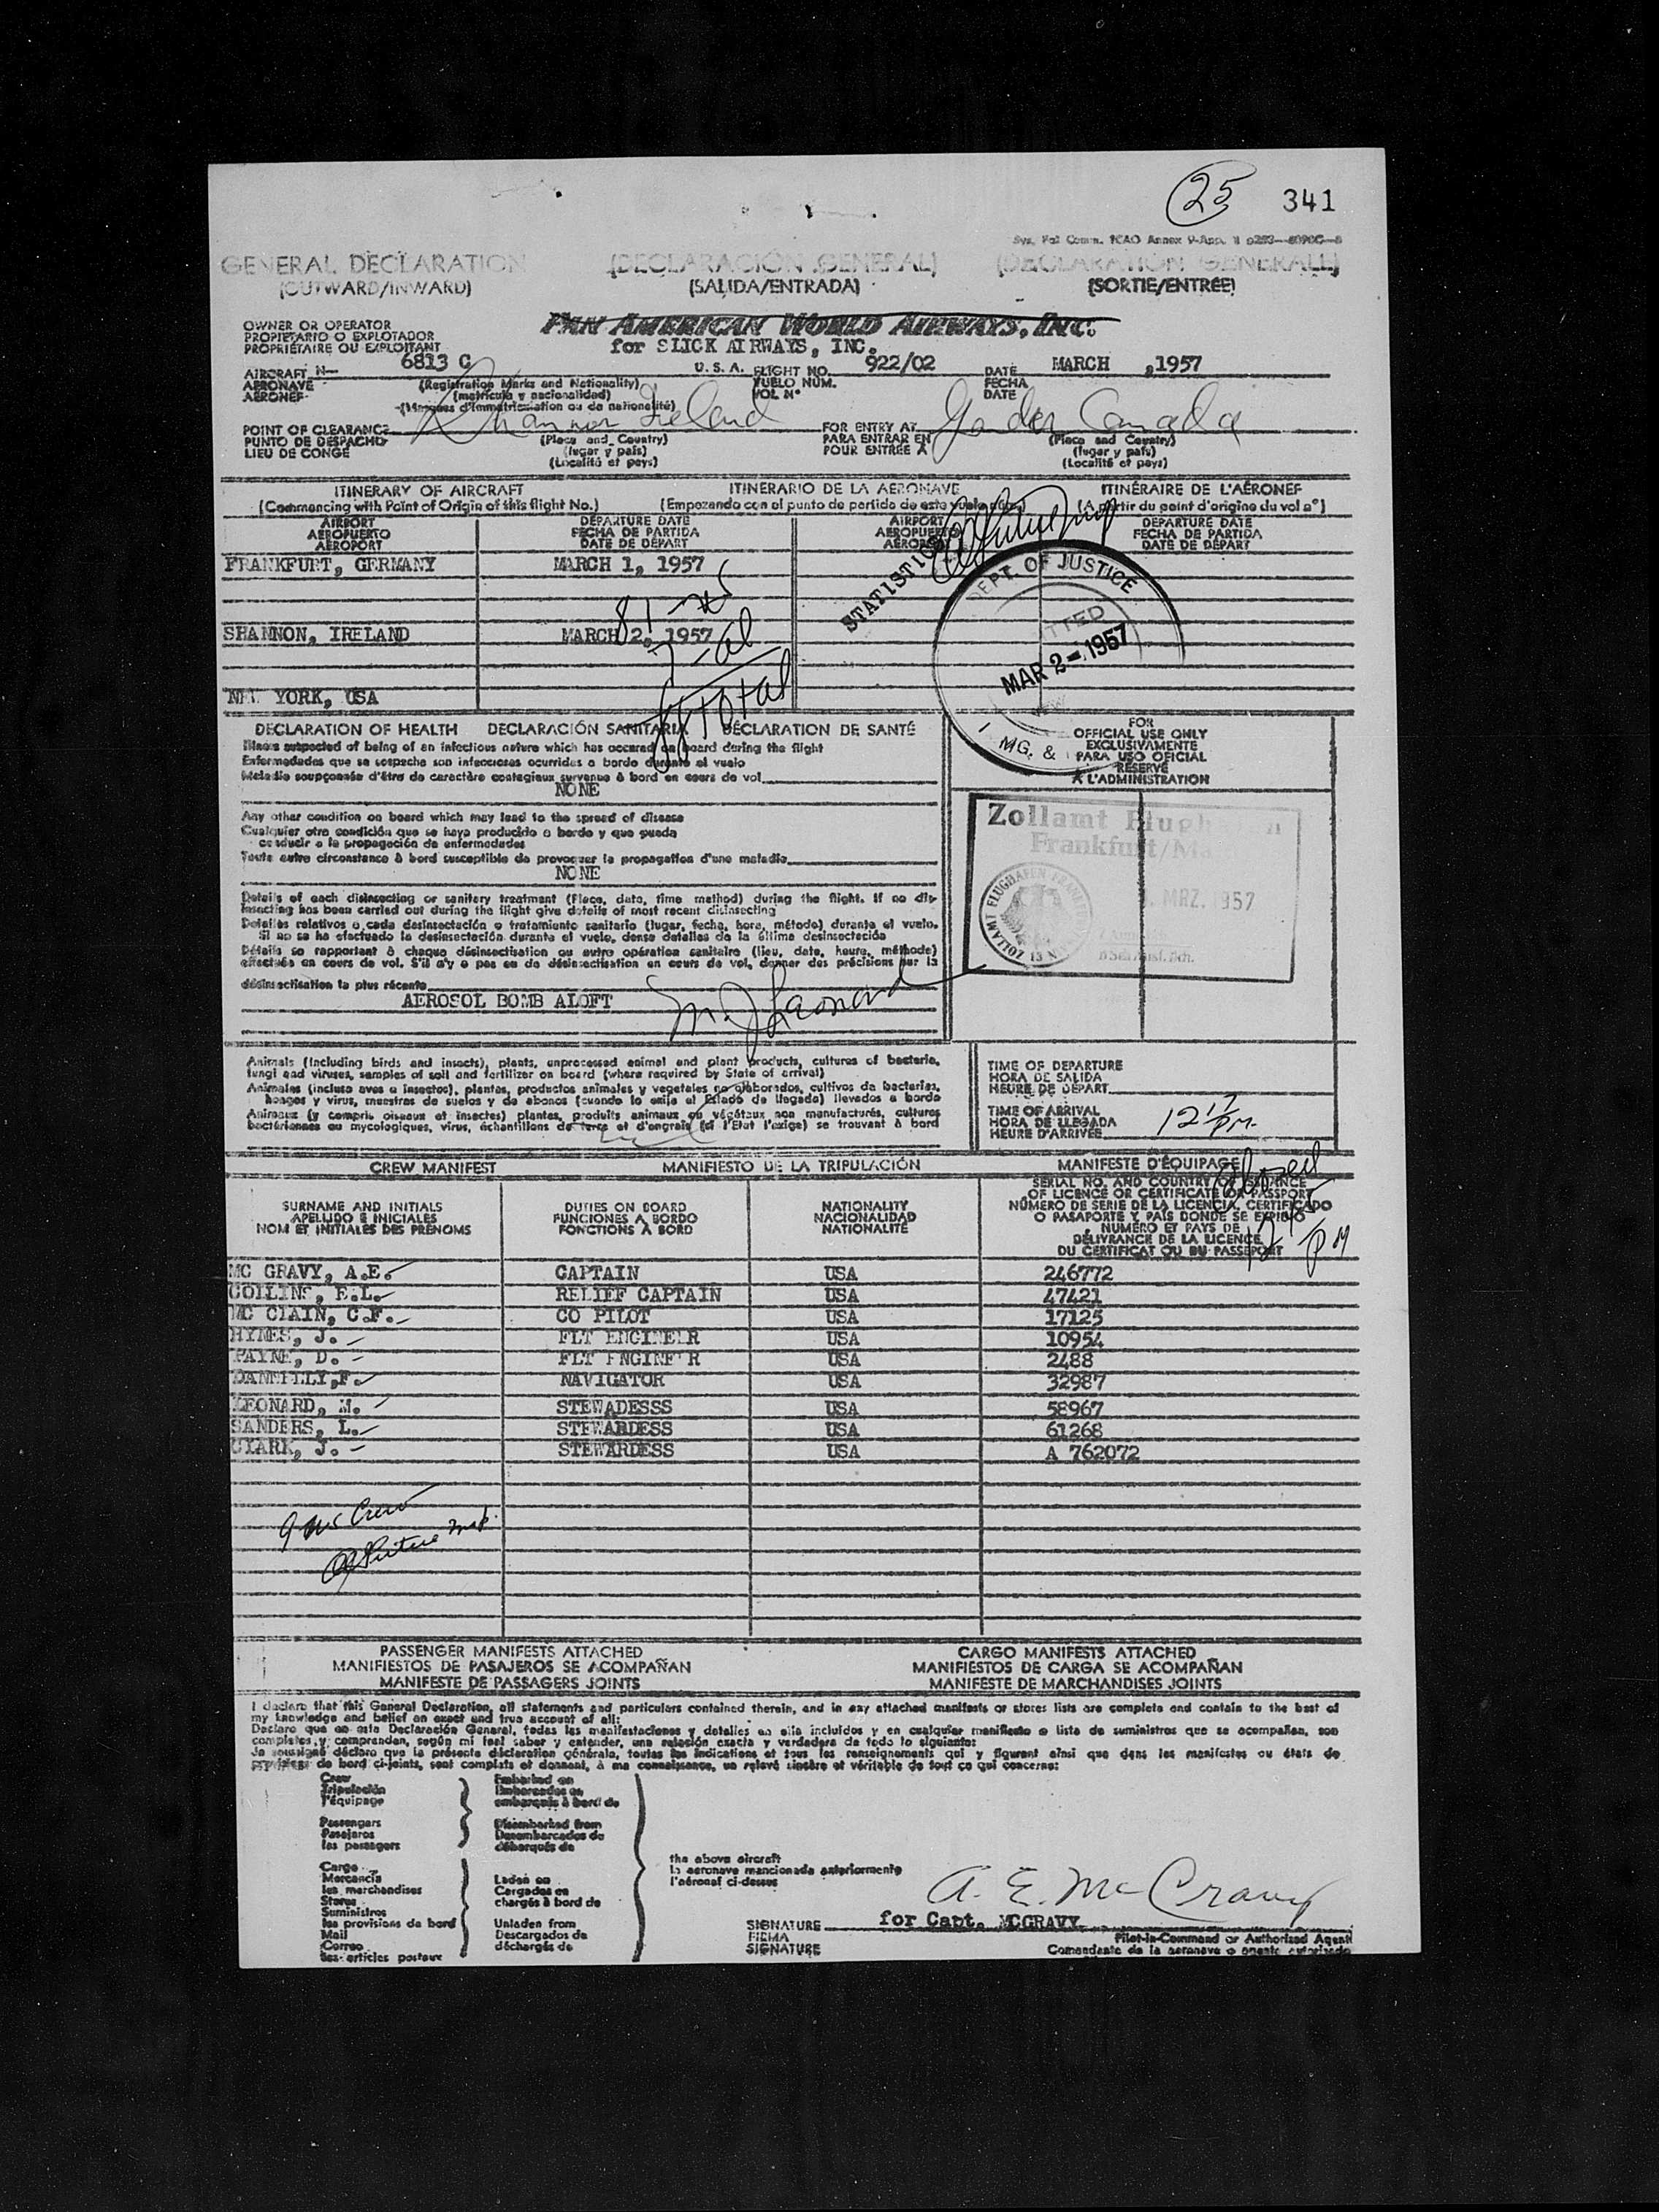 25 341
GENERAL DECLARATION (DECLARACIÓN GENERAL) (DÉCLARATION GENERALE)
(OUTWARD/INWARD) (SALIDA/ENTRADA) (SORTIE/ENTRÉE)
OWNER OR OPERATOR
PROPIETARIO O EXPLOTADOR
PROPRIÉTAIRE OU EXPLOITANT
PAN AMERICAN WORLD AIRWAYS, INC.
for SLICK AIRWAYS, INC.
AIRCRAFT N- 6813 C U. S. A. FLIGHT NO. 922/02 DATE MARCH ,1957
AERONAVE (Registration Marks and Nationality) VUELO NÚM. FECHA
AÉRONEF (matrícula y nacionalidad) VOL Nº DATE
(Marques d'immatriculation ou de nationalité)
POINT OF CLEARANCE Shannon Ireland FOR ENTRY AT Gander Canada
PUNTO DE DESPACHO (Place and Country) PARA ENTRAR EN (Place and Country)
LIEU DE CONGÉ (lugar y país) POUR ENTRÉE À (lugar y país)
(Localité et pays) (Localité et pays)
ITINERARY OF AIRCRAFT ITINERARIO DE LA AERONAVE ITINÉRAIRE DE L'AÉRONEF
(Commencing with Point of Origin of this flight No.) (Empezando con el punto de partida de este vuelo núm.) (A partir du point d'origine du vol nº)
AIRPORT DEPARTURE DATE AIRPORT DEPARTURE DATE
AEROPUERTO FECHA DE PARTIDA AEROPUERTO FECHA DE PARTIDA
AÉROPORT DATE DE DÉPART AÉROPORT DATE DE DÉPART
FRANKFURT, GERMANY MARCH 1, 1957
SHANNON, IRELAND MARCH 2, 1957
NEW YORK, USA
81
total
STATISTICS
DEPT. OF JUSTICE
MAR 2-1957
DECLARATION OF HEALTH DECLARACIÓN SANITARIA DÉCLARATION DE SANTÉ
Illness suspected of being of an infectious nature which has occured on board during the flight
Enfermedades que se sospecha son infecciosas ocurridas a bordo durante el vuelo
Maladie soupçonnée d'être de caractère contagieux survenue à bord en cours de vol
NONE
Any other condition on board which may lead to the spread of disease
Cualquier otra condición que se haya producido a bordo y que pueda
conducir a la propagación de enfermedades
Toute autre circonstance à bord susceptible de provoquer la propagation d'une maladie
NONE
Details of each disinsecting or sanitary treatment (Place, date, time method) during the flight. If no dis-
insecting has been carried out during the flight give details of most recent disinsecting
Detalles relativos a cada desinsectación o tratamiento sanitario (lugar, fecha, hora, método) durante el vuelo.
Si no se ha efectuado la desinsectación durante el vuelo, dense detalles de la última desinsectación
Détails se rapportant à chaque désinsectisation ou autre opération sanitaire (lieu, date, heure, méthode)
effectuée en cours de vol. S'il n'y a pas eu de désinsectisation en cours de vol, donner des précisions sur la
désinsectisation la plus récente
AEROSOL BOMB ALOFT M. J Leonard
FOR
OFFICIAL USE ONLY
EXCLUSIVAMENTE
PARA USO OFICIAL
RÉSERVÉ
À L'ADMINISTRATION
Zollamt
Frankfurt
MRZ. 1957
ZOLLAMT FLUGHAFEN FRANKFURT
Animals (including birds and insects), plants, unprocessed animal and plant products, cultures of bacteria,
fungi and viruses, samples of soil and fertilizer on board (where required by State of arrival)
Animales (incluso aves e insectos), plantas, productos animales y vegetales no elaborados, cultivos de bacterias,
hongos y virus, muestras de suelos y de abonos (cuando lo exija el Estado de llegada) llevados a bordo
Animaux (y compris oiseaux et insectes) plantes, produits animaux ou végétaux non manufacturés, cultures
bactériennes ou mycologiques, virus, échantillons de terre et d'engrais (si l'Etat l'exige) se trouvant à bord
TIME OF DEPARTURE
HORA DE SALIDA
HEURE DE DÉPART
TIME OF ARRIVAL
HORA DE LLEGADA
HEURE D'ARRIVÉE 12 17 PM
CREW MANIFEST MANIFIESTO DE LA TRIPULACIÓN MANIFESTE D'ÉQUIPAGE
SURNAME AND INITIALS
APELLIDO E INICIALES
NOM ET INITIALES DES PRÉNOMS
DUTIES ON BOARD
FUNCIONES A BORDO
FONCTIONS À BORD
NATIONALITY
NACIONALIDAD
NATIONALITÉ
SERIAL NO. AND COUNTRY OF ISSUANCE
OF LICENCE OR CERTIFICATE OR PASSPORT
NÚMERO DE SERIE DE LA LICENCIA, CERTIFICADO
O PASAPORTE Y PAÍS DONDE SE EXPIDIÓ
NUMÉRO ET PAYS DE
DÉLIVRANCE DE LA LICENCE
DU CERTIFICAT OU DU PASSEPORT
MC GRAVY, A.E. CAPTAIN USA 246772
COLLINS, E.L. RELIEF CAPTAIN USA 47421
MC CLAIN, C.F. CO PILOT USA 17125
HYNES, J. FLT ENGINEER USA 10954
PAYNE, D. FLT ENGINEER USA 2488
DANNELLY,F. NAVIGATOR USA 32987
LEONARD, M. STEWADESSS USA 58967
SANDERS, L. STEWARDESS USA 61268
CLARK, J. STEWARDESS USA A 762072
9 Crew
PASSENGER MANIFESTS ATTACHED CARGO MANIFESTS ATTACHED
MANIFIESTOS DE PASAJEROS SE ACOMPAÑAN MANIFIESTOS DE CARGA SE ACOMPAÑAN
MANIFESTE DE PASSAGERS JOINTS MANIFESTE DE MARCHANDISES JOINTS
I declare that this General Declaration, all statements and particulars contained therein, and in any attached manifests or stores lists are complete and contain to the best of
my knowledge and belief an exact and true account of all:
Declaro que en esta Declaración General, todas las manifestaciones y detalles en ella incluidos y en cualquier manifiesto o lista de suministros que se acompañan, son
completos, y comprenden, según mi leal saber y entender, una relación exacta y verdadera de todo lo siguiente:
Je soussigné déclare que la présente déclaration générale, toutes les indications et tous les renseignements qui y figurent ainsi que dans les manifestes ou états de
provisions de bord ci-joints, sont complets et donnent, à ma connaissance, un relevé sincère et véritable de tout ce qui concerne:
Crew Embarked on
Tripulación Embarcados en
l'équipage embarqués à bord de
Passengers Disembarked from
Pasajeros Desembarcados de
les passagers débarqués de
Cargo
Mercancía Laden on
les marchandises Cargados en
Stores chargés à bord de
Suministros
les provisions de bord Unladen from
Mail Descargados de
Correo déchargés de
les articles postaux
the above aircraft
la aeronave mencionada anteriormente
l'aéronef ci-dessus
A. E. McGravy
SIGNATURE for Capt. MCGRAVY
FIRMA Pilot-in-Command or Authorized Agent
SIGNATURE Comandante de la aeronave o agente autorizado